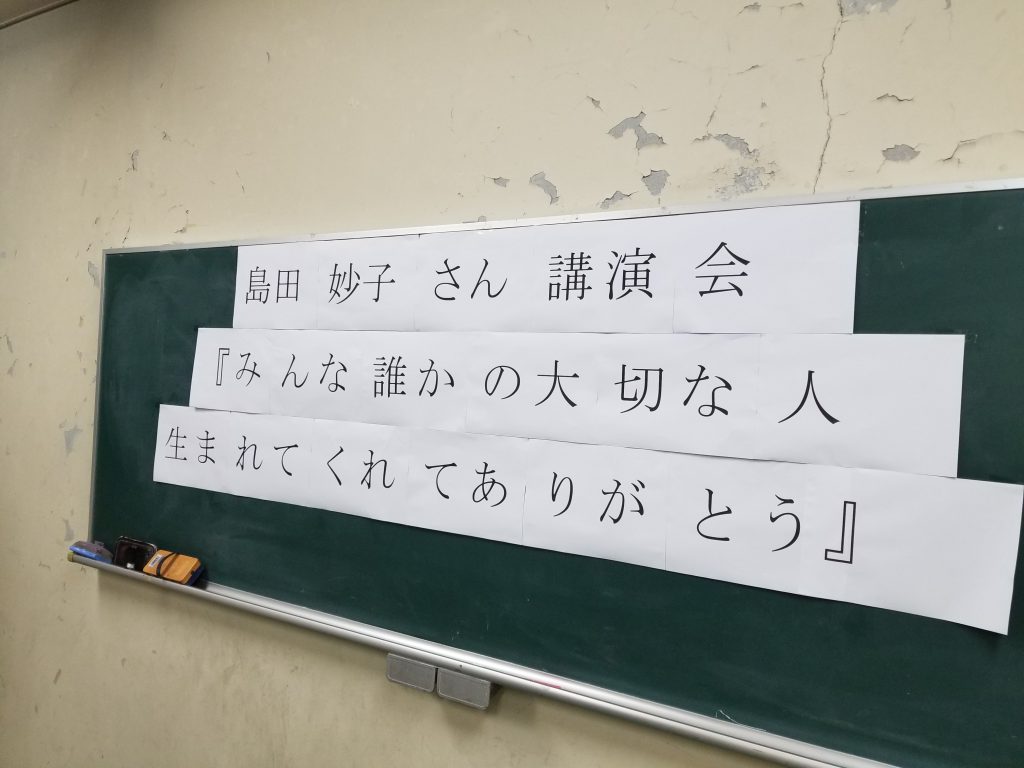 島田妙子さん講演会
『みんな誰かの大切な人
生まれてくれてありがとう』